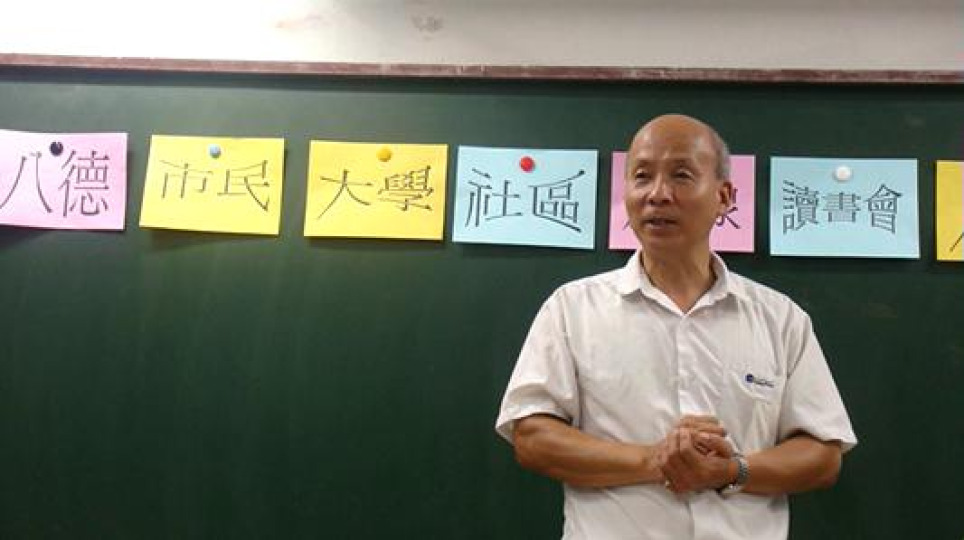 八德
市民
大學
社區
讀書會